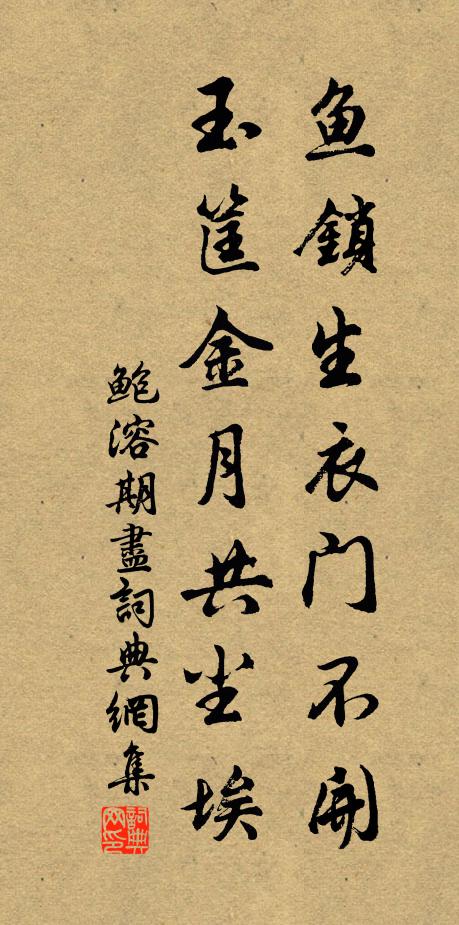 鱼鎖生衣门不開
玉筐金月共尘埃
鲍溶期盡詞典網集
詞典網印